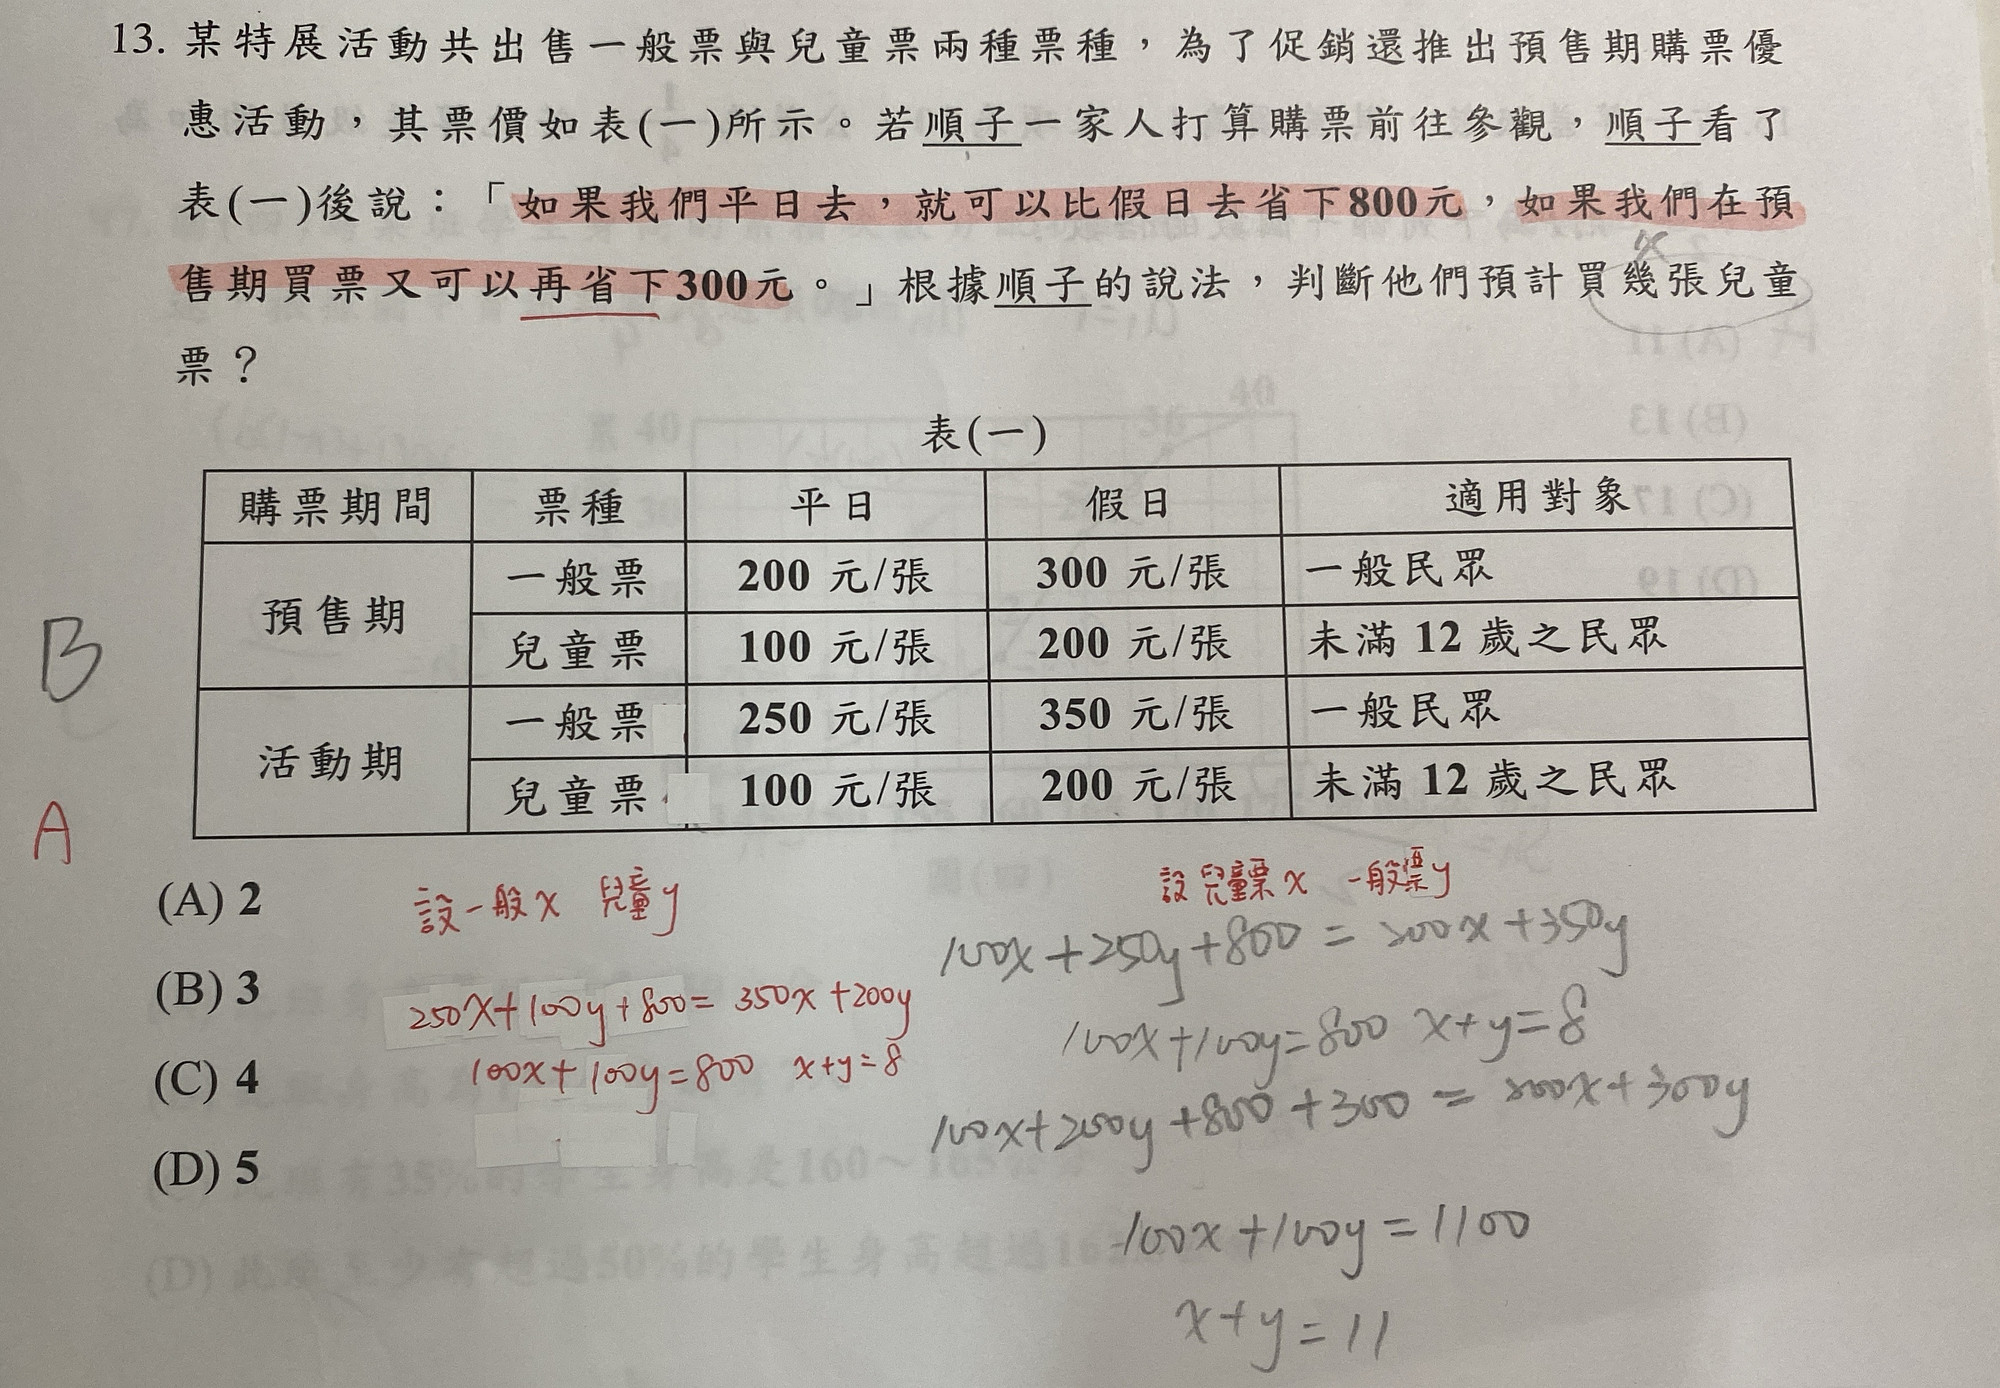 13. 某特展活動共出售一般票與兒童票兩種票種，為了促銷還推出預售期購票優
惠活動，其票價如表(一)所示。若順子一家人打算購票前往參觀，順子看了
表(一)後說：「如果我們平日去，就可以比假日去省下800元，如果我們在預
售期買票又可以再省下300元。」根據順子的說法，判斷他們預計買幾張兒童
x
票？
表(一)
購票期間 票種 平日 假日 適用對象
預售期 一般票 200 元/張 300 元/張 一般民眾
兒童票 100 元/張 200 元/張 未滿 12 歲之民眾
活動期 一般票 250 元/張 350 元/張 一般民眾
兒童票 100 元/張 200 元/張 未滿 12 歲之民眾
B
A
(A) 2
(B) 3
(C) 4
(D) 5
設一般x 兒童y
250x+100y+800=350x+200y
100x+100y=800 x+y=8
設兒童票x 一般票y
100x+250y+800=200x+350y
100x+100y=800 x+y=8
100x+200y+800+300=200x+300y
100x+100y=1100
x+y=11